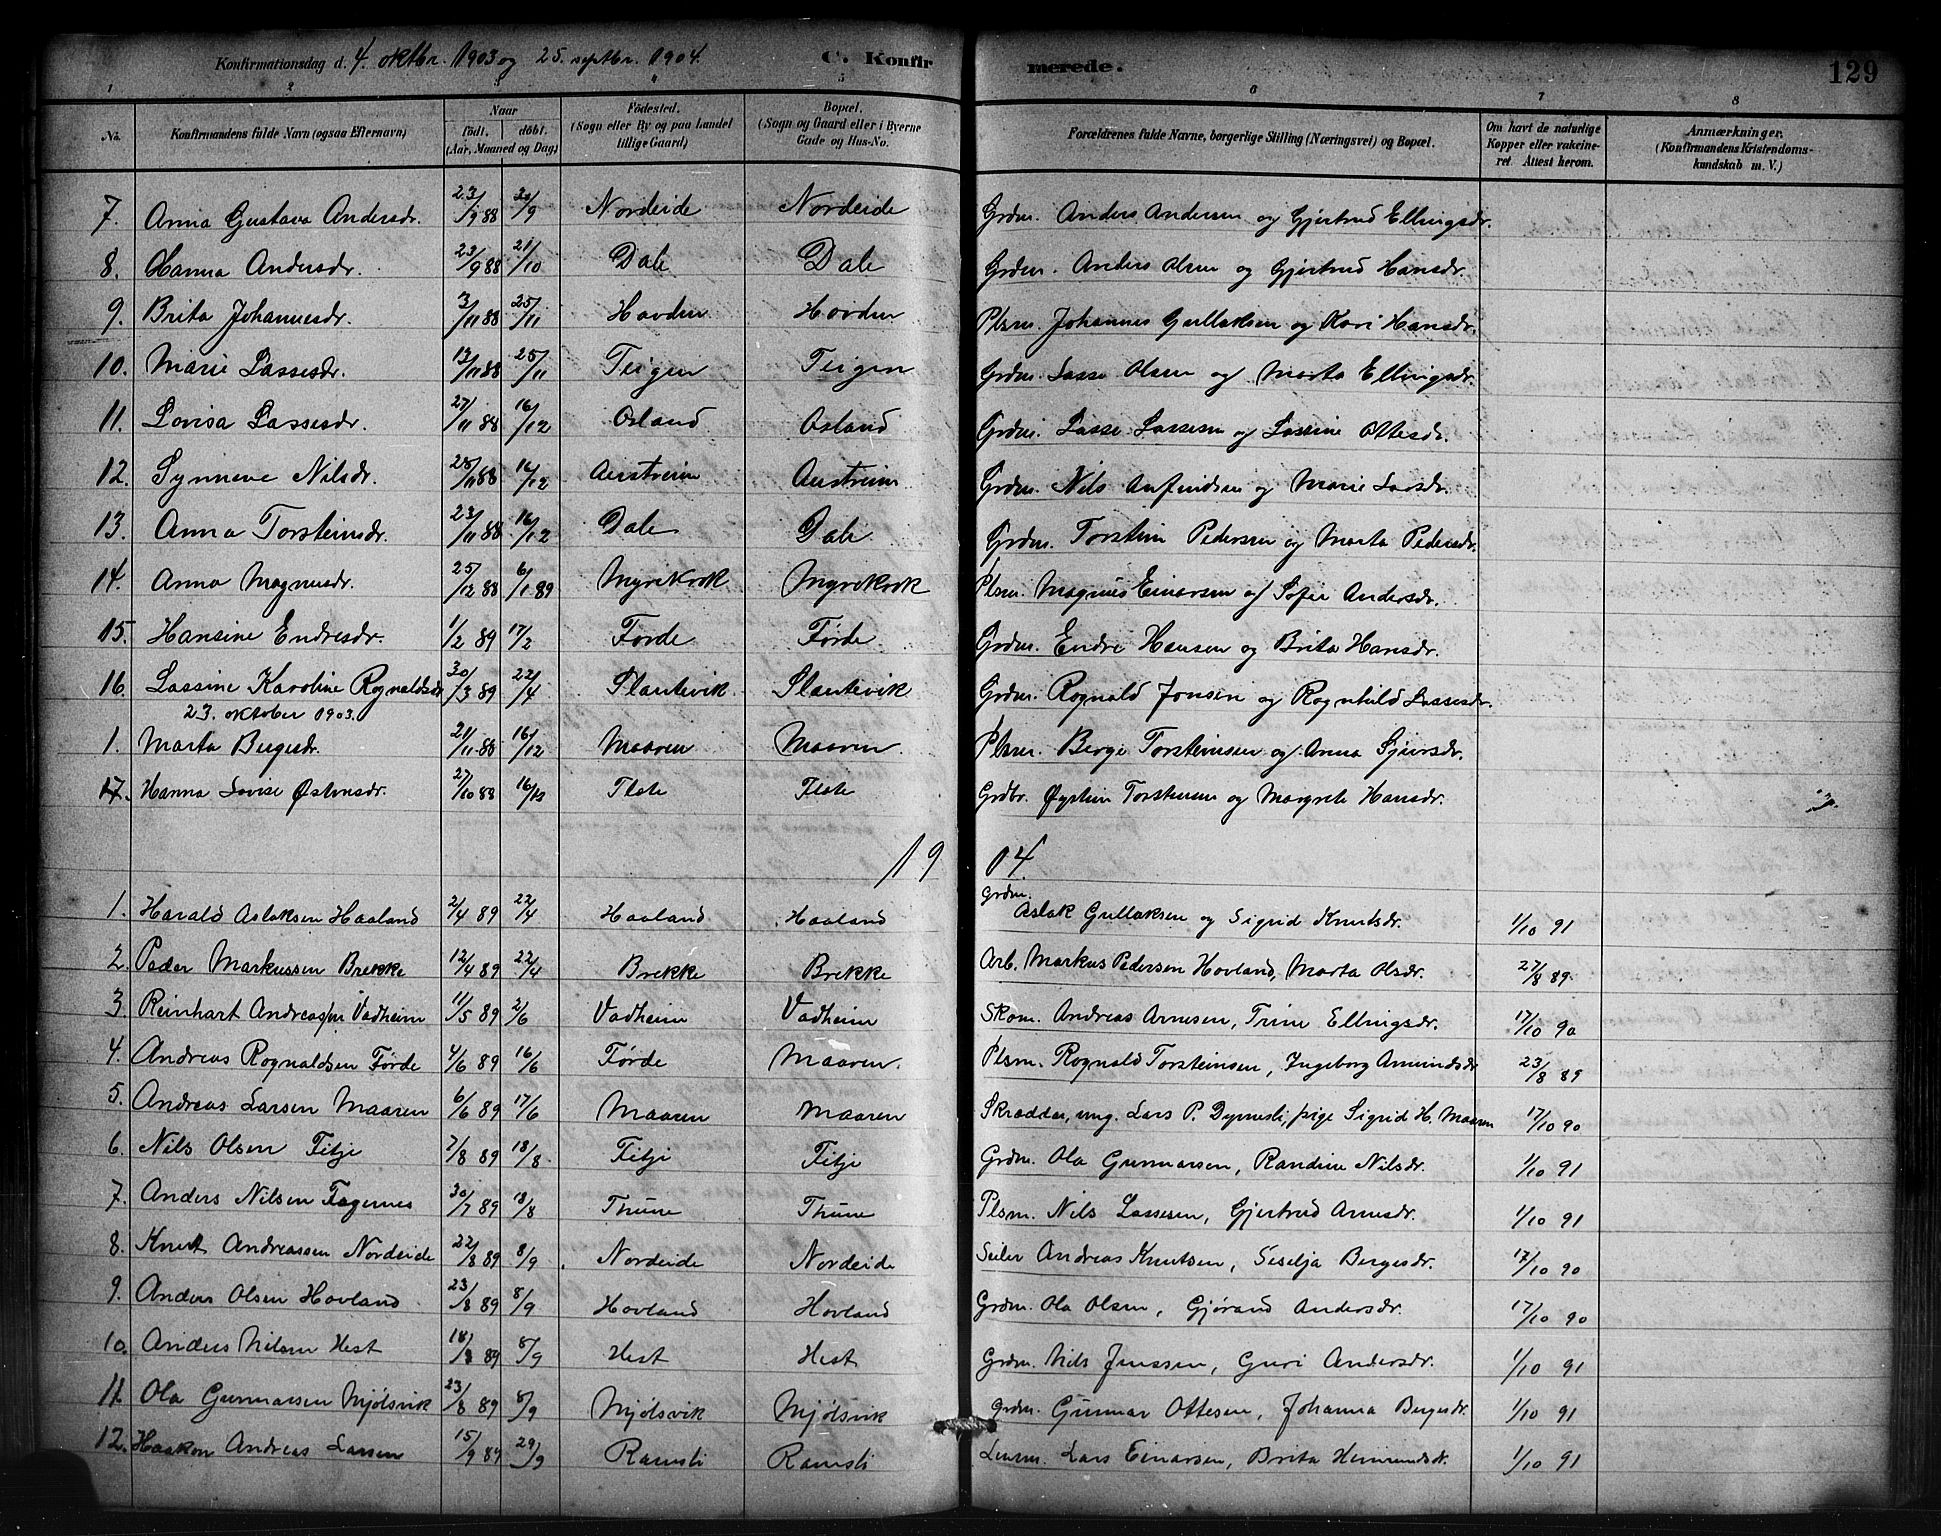 Konfirmationsdag d. 4. oktbr. 1903 og 25. septbr. 1904. C. Konfirmerede. 129
1 2 3 4 5 6 7 8
No. Konfirmandens fulde Navn (ogsaa Efternavn) Naar födt. döbt. (Aar, Maaned og Dag) Födested. (Sogn eller By og paa Landet tillige Gaard) Bopæl. (Sogn og Gaard eller i Byerne Gade og Hus-No. Forældrenes fulde Navne, borgerlige Stilling (Næringsvei) og Bopæl. Om havt de naturlige Kopper eller vakcineret. Attest herom. Anmærkninger. (Konfirmandens Kristendomskundskab m. V.)
7. Anna Gustava Andersdr. 23/9 88 30/9 Nordeide Nordeide Grdm. Anders Andersen og Gjertrud Ellingsdr.
8. Hanna Andersdr. 23/9 88 21/10 Dale Dale Grdm. Anders Olsen og Gjertrud Hansdr.
9. Brita Johannesdr. 3/11 88 25/11 Hovden Hovden Plsm. Johannes Gullaksen og Kari Hansdr.
10. Marie Lassesdr. 13/11 88 25/11 Teigen Teigen Grdm. Lasse Olsen og Marta Ellingsdr.
11. Lovisa Lassesdr. 27/11 88 16/12 Osland Osland Grdm. Lasse Lassesen og Lassine Ottesdr.
12. Synneve Nilsdr. 28/11 88 16/12 Austreim Austreim Grdm. Nils Anfindsen og Marie Larsdr.
13. Anna Torsteinsdr. 23/11 88 16/12 Dale Dale Grdm. Torstein Pedersen og Marta Pedersdr.
14. Anna Magnusdr. 25/12 88 6/1 89 Myrekrok Myrekrok Plsm. Magnus Einarsen og Sofie Andersdr.
15. Hansine Endresdr. 1/2 89 17/2 Førde Førde Grdm. Endre Hansen og Brita Hansdr.
16. Lassine Karoline Rognaldsdr. 30/3 89 22/4 Slantevik Slantevik Grdm. Rognald Jonsen og Rognhild Lassesdr.
23. oktober 1903.
1. Marta Bergesdr. 21/11 88 16/12 Maaren Maaren. Plsm. Berge Torsteinsen og Anna Sjursdr.
17. Hanna Lovise Østensdr. 27/10 88 16/12 Flote Flote Grdbr. Øystein Torsteinsen og Margrete Hansdr.
1904.
1. Harald Aslaksen Haaland 2/4 89 22/4 Haaland Haaland Grdm. Aslak Gullaksen og Sigrid Knutsdr. 1/10 91
2. Peder Markussen Brekke 12/4 89 22/4 Brekke Brekke Arb. Markus Pedersen Hovland, Marta Olsdr. 27/8 89.
3. Reinhart Andreassen Vadheim 11/5 89 2/6 Vadheim Vadheim Skom. Andreas Arnesen, Trine Ellingsdr. 17/10 90
4. Andreas Rognaldsen Førde 4/6 89 16/6 Førde Maaren. Plsm. Rognald Torsteinsen, Ingeborg Amundsdr 23/8 89
5. Andreas Larsen Maaren 6/6 89 17/6 Maaren Maaren Skrædder, ung. Lars P. Dyrnesli, pige Sigrid H. Maaren 17/10 90
6. Nils Olsen Fitje 7/8 89 18/8. Fitje Fitje Grdm. Ola Gunnarsen, Randine Nilsdr. 1/10 91
7. Anders Nilsen Fagernes 30/7 89 18/8 Thune Thune Plsm. Nils Lassesen, Gjertrud Arnesdr. 1/10 91
8. Knut Andreassen Nordeide 22/8 89 8/9 Nordeide Nordeide Seiler Andreas Knutsen, Siselja Bergesdr. 17/10 90
9. Anders Olsen Hovland 23/8 89 8/9 Hovland Hovland Grdm. Ola Olsen, Gjørand Andersdr. 17/10 90
10. Anders Nilsen Hest 18/8 89 8/9 Hest Hest Grdm. Nils Jenssen, Guri Andersdr. 1/10 91
11. Ola Gunnarsen Mjølsvik 23/8 89 8/9 Mjølsvik Mjølsvik Grdm. Gunnar Ottesen, Johanna Bergesdr. 1/10 91
12. Haakon Andreas Larsen 15/9 89 29/9 Ramsli Ramsli Lensm. Lars Einarsen, Brita Heinrundsdr. 1/10 91